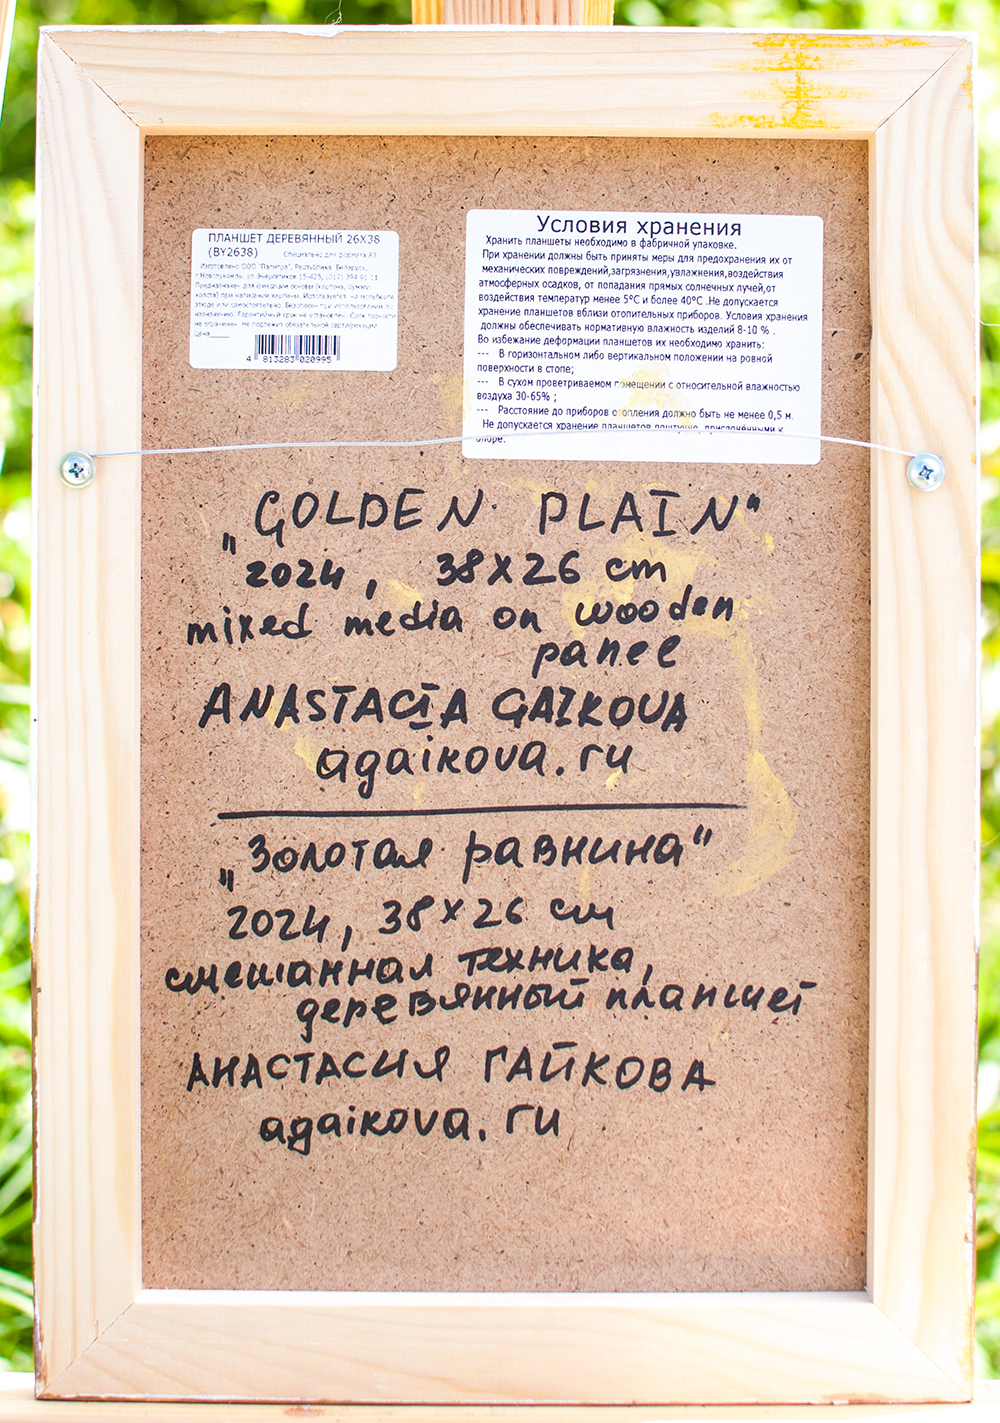 ПЛАНШЕТ ДЕРЕВЯННЫЙ 26Х38
(BY2638) Специально для формата А3
Изготовлено ООО "Палитра", Республика Беларусь,
г.Новолукомль, ул.Энергетиков 15-425, (017) 394 91 11
Предназначен для фиксации основы (картона, бумаги,
холста) при написании картины. Используется на мольберте,
этюде или самостоятельно. Безопасен при использовании по
назначению. Гарантийный срок не установлен. Срок годности
не ограничен. Не подлежит обязательной сертификации.
Цена____
4 813283 020995
Условия хранения
Хранить планшеты необходимо в фабричной упаковке.
При хранении должны быть приняты меры для предохранения их от
механических повреждений,загрязнения,увлажнения,воздействия
атмосферных осадков, от попадания прямых солнечных лучей,от
воздействия температур менее 5°С и более 40°С .Не допускается
хранение планшетов вблизи отопительных приборов. Условия хранения
должны обеспечивать нормативную влажность изделий 8-10 % .
Во избежание деформации планшетов их необходимо хранить:
--- В горизонтальном либо вертикальном положении на ровной
поверхности в стопе;
--- В сухом проветриваемом помещении с относительной влажностью
воздуха 30-65% ;
--- Расстояние до приборов отопления должно быть не менее 0,5 м.
Не допускается хранение планшетов поштучно, прислонёнными к
опоре.
„GOLDEN PLAIN"
2024, 38x26 cm
mixed media on wooden
panel
ANASTACIA GAIKOVA
agaikova.ru
„Золотая равнина"
2024, 38x26 см
смешанная техника,
деревянный планшет
АНАСТАСИЯ ГАЙКОВА
agaikova.ru